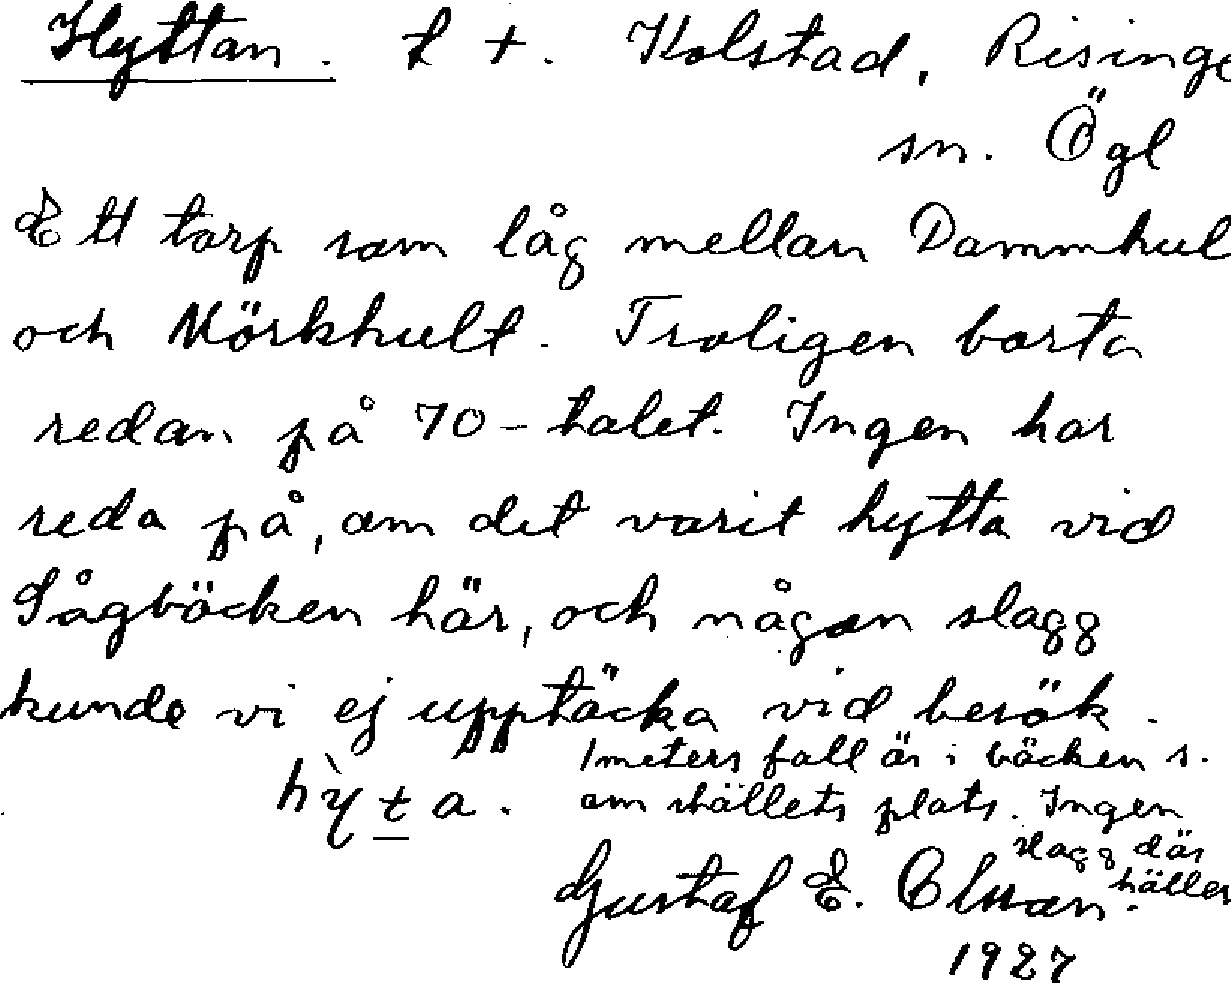 Hyttan. t t. Kolstad, Risinge
sn. Ögl
Ett torp som låg mellan Dammhul
och Mörkhult. Troligen borta
redan på 70-talet. Ingen har
reda på, om det varit hytta vid
Sågbäcken här, och någon slagg
kunde vi ej upptäcka vid besök.
hỳta.
1 meters fall är i bäcken s.
om ställets plats. Ingen
slagg där
häller.
Gustaf E.
1927